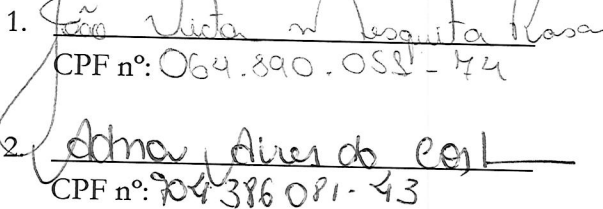 1. João Victor M Mesquita Rosa
CPF nº: 064.890.058-74
2. Adna Aires do
CPF nº: 904 386 081-43